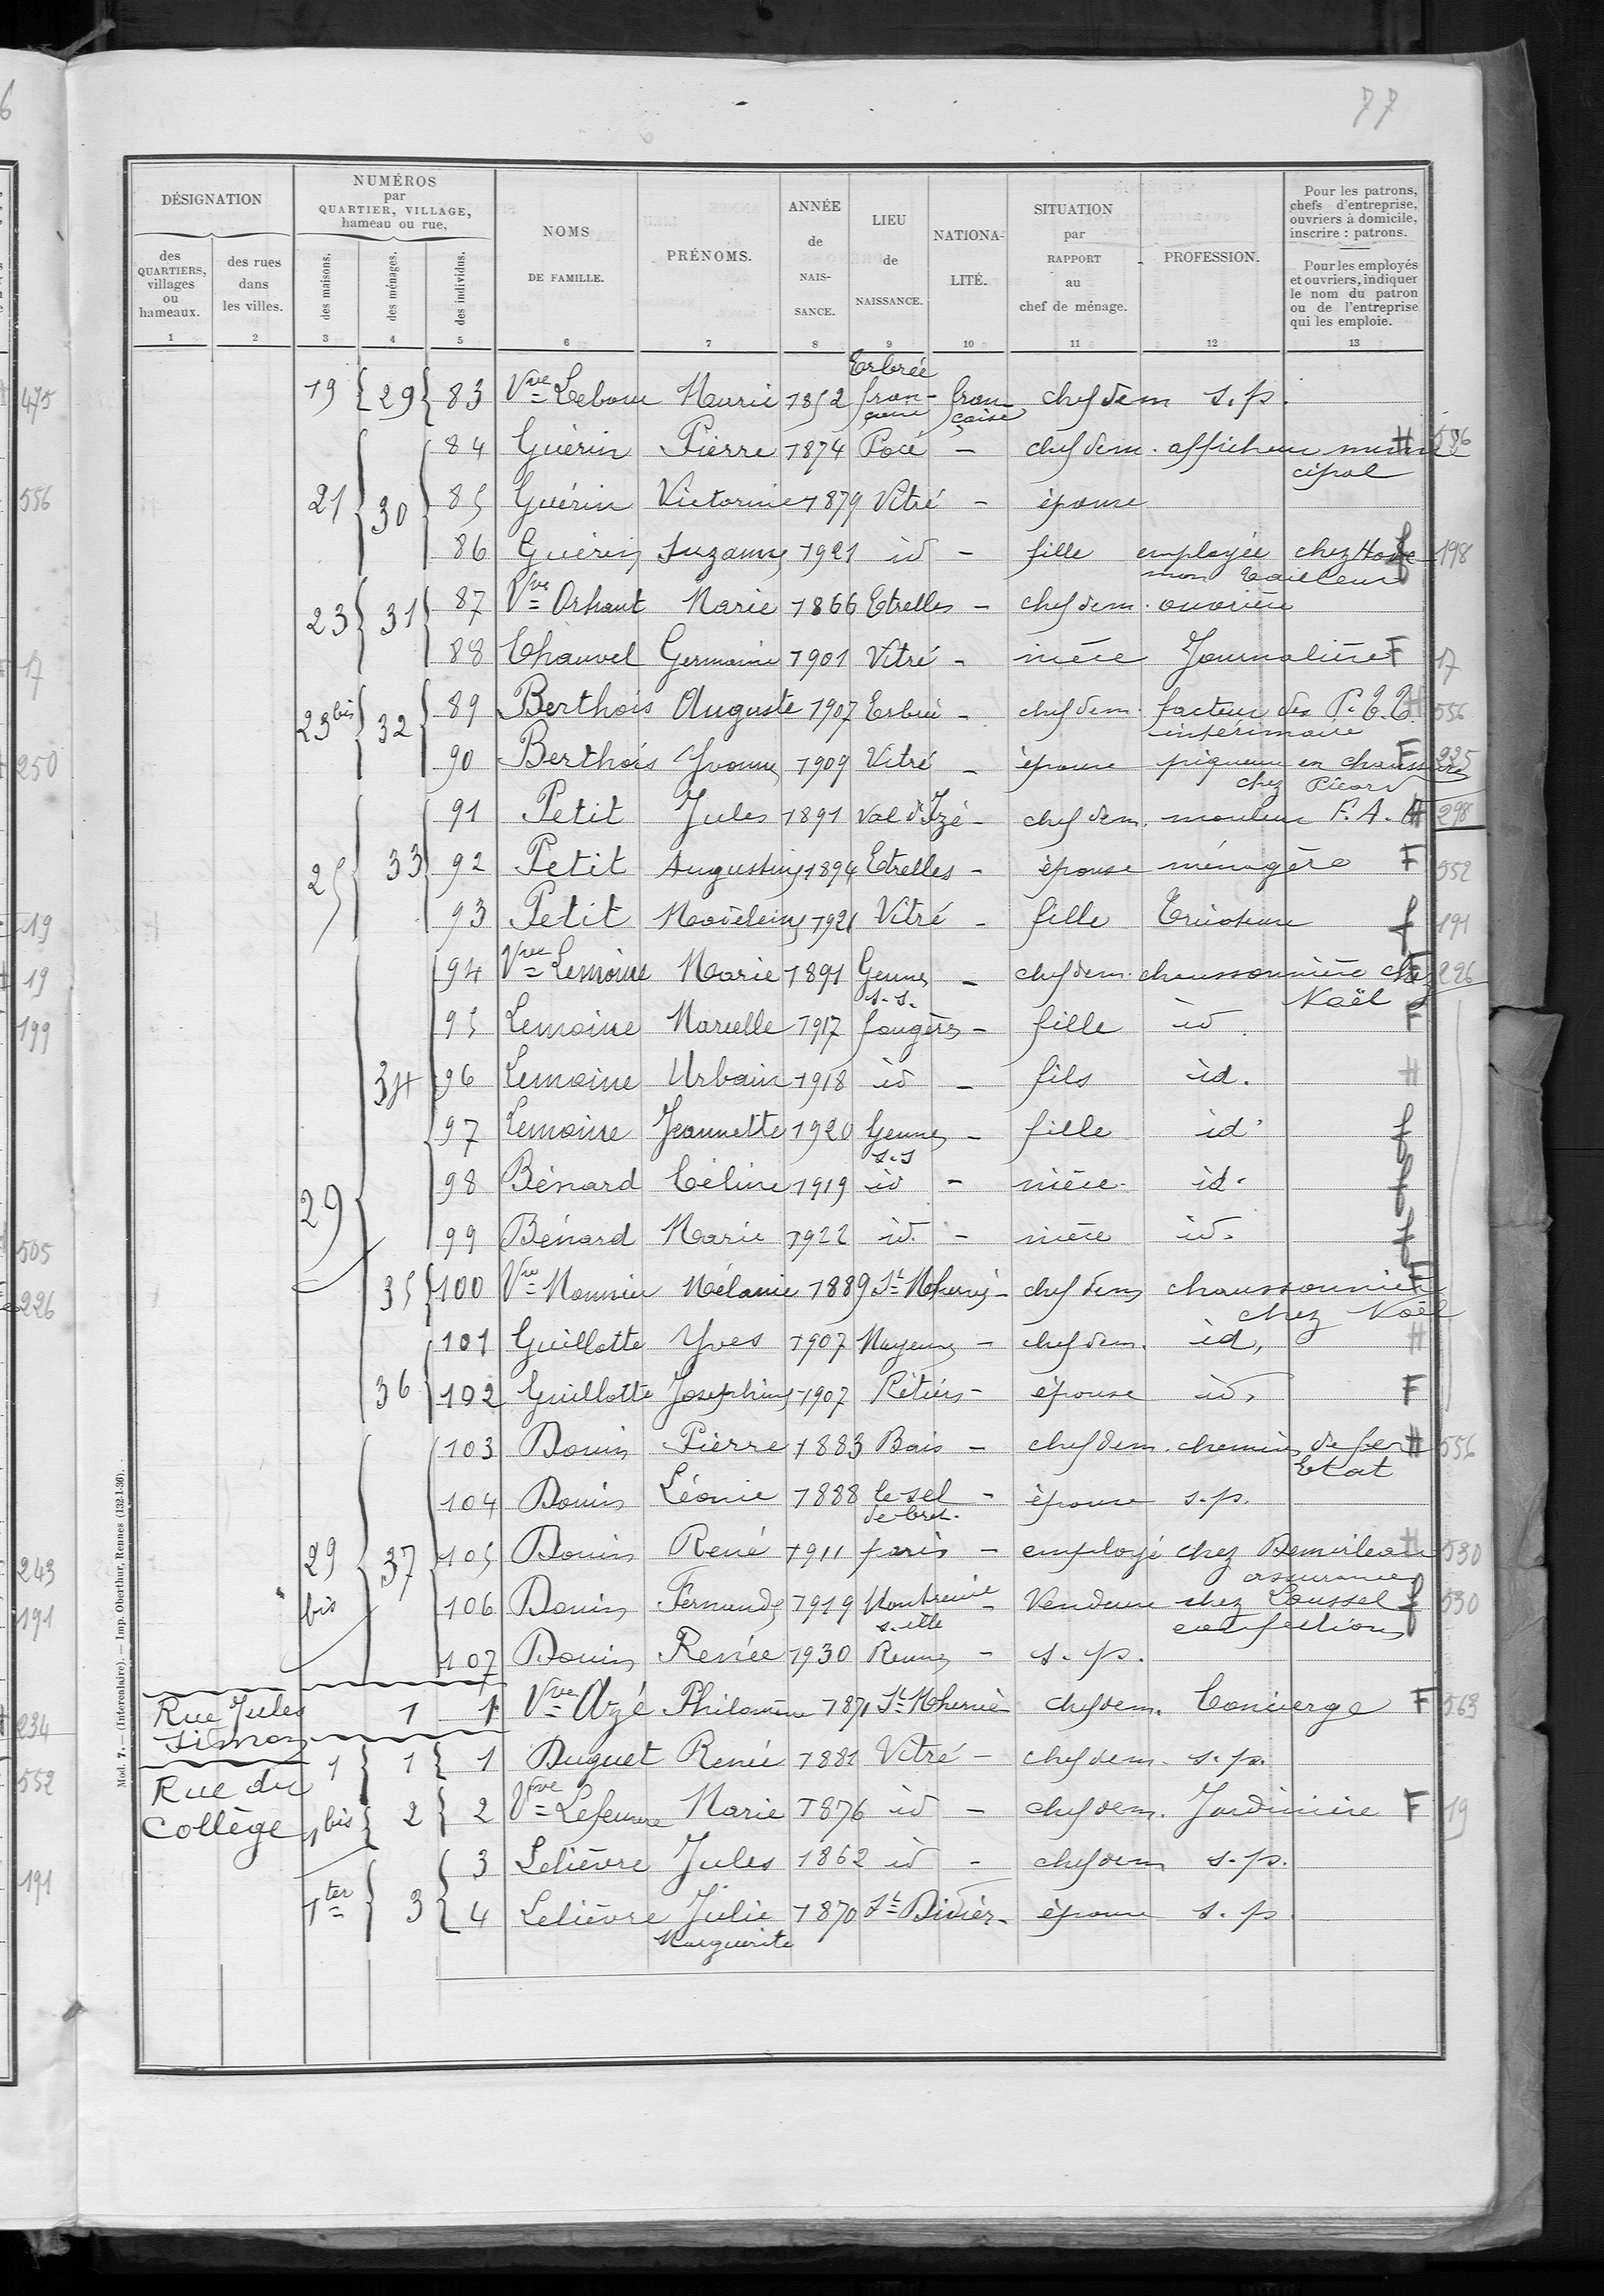 77
DÉSIGNATION
des QUARTIERS, villages ou hameaux.
des rues dans les villes.
NUMÉROS par QUARTIER, VILLAGE, hameau ou rue.
des maisons.
des ménages.
des individus.
NOMS DE FAMILLE.
PRÉNOMS.
ANNÉE de NAIS- SANCE.
LIEU de NAISSANCE.
NATIONA- LITÉ.
SITUATION par RAPPORT au chef de ménage.
PROFESSION.
Pour les patrons, chefs d'entreprise, ouvriers à domicile, inscrire : patrons.
Pour les employés et ouvriers, indiquer le nom du patron ou de l'entreprise qui les emploie.
1 2 3 4 5 6 7 8 9 10 11 12 13
19 29 83 Vve Marie 1852 Erbrée fran- çaise chef dem s.p.
84 Guérin Pierre 1874 Pocé - chef dem. afficheur muni cipal H 556
21 30 85 Guérin Victorine 1879 Vitré - épouse
86 Guérin Suzanne 1921 id - fille employée chez tailleur f 198
23 31 87 Vve Orhant Marie 1866 Etrelles - chef dem. ouvrière
88 Chauvel Germaine 1901 Vitré - nièce Journalière F 17
23bis 32 89 Berthois Auguste 1907 Erbrée - chef dem. facteur des P.T.T. intérimaire H 556
90 Berthois Yvonne 1909 Vitré - épouse piqueuse en chaussures chez Picard F 225
91 Petit Jules 1891 Val d'Izé - chef dem. mouleur F. A. H 298
25 33 92 Petit Augustine 1894 Etrelles - épouse ménagère F 552
93 Petit Madeleine 1921 Vitré - fille Tricoteuse f 191
94 Vve Lemoine Marie 1891 Gennes s.s. - chef dem. chaussonnière chez Noël F 226
95 Lemoine Marcelle 1917 fougères - fille id F
34 96 Lemoine Urbain 1918 id - fils id. H
97 Lemoine Jeannette 1920 Gennes s.s - fille id. f
98 Bénard Céline 1919 id - nièce id. f
29 99 Bénard Marie 1922 id. - nièce id. f
35 100 Vve Monnier Mélanie 1889 St M'hervé - chef dem chaussonnière chez Noël F
101 Guillotte Yves 1907 Mayenne - chef dem. id, H
36 102 Guillotte Josephine 1907 Rétiers - épouse id, F
103 Douin Pierre 1883 Bais - chef dem. chemins de fer Etat H 556
104 Douin Léonie 1888 le sel de bret. - épouse s.p.
29 bis 37 105 Douin René 1911 paris - employé chez assurances H 530
106 Douin Fernande 1919 Montreuil s. ille - Vendeuse chez Loussel confections f 530
107 Douin Renée 1930 Rennes - s.p.
Rue Jules Simon 1 1 Vve Azé Philomène 1871 St M'hervé chef dem. Concierge F 563
Rue du Collège 1 1 1 Duguet Renée 1881 Vitré - chef dem. s.p.
1bis 2 2 Vve Lefeuvre Marie 1876 id - chef dem. Jardinière F 19
3 Lelièvre Jules 1862 id - chef dem s.p.
1ter 3 4 Lelièvre Julie Marguerite 1870 St Didier - épouse s.p
Mod. 7. — (Intercalaire). — Imp. Oberthur, Rennes (132-1-36).
6
475
556
17
250
19
19
199
505
226
243
191
234
552
191